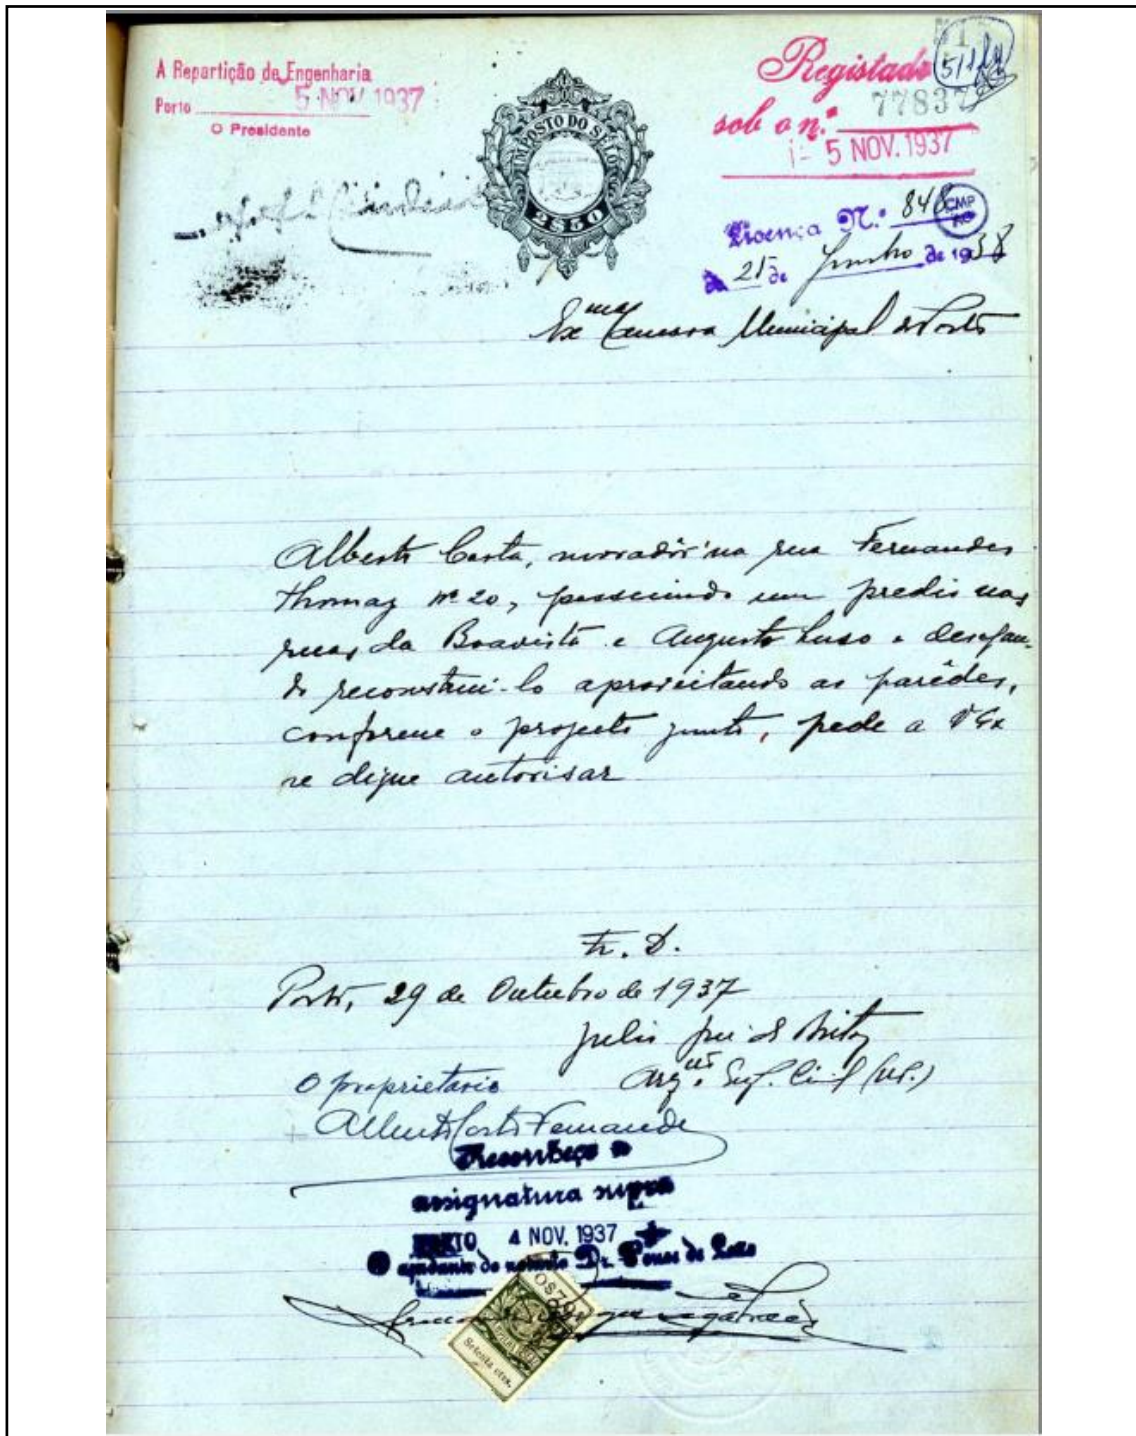 A Repartição de Engenharia
Porto 5 NOV 1937
O Presidente
IMPOSTO DO SELO
2$50
Registado
sob o n.º 77837
5 NOV. 1937
51
Licença N.º 848
CMP
AG
de 25 de Junho de 1938
Exma Camara Municipal do Porto
Alberto Costa, moradôr na rua Fernandes
Thomaz nº 20, possuindo um predio nas
ruas da Boavista e Augusto Luso e desejan-
do reconstrui-lo aproveitando as parêdes,
conforme o projecto junto, pede a V Ex
se digne autorisar
E. D.
Porto, 29 de Outubro de 1937
Julio José de Brito
Arqto. Eng. Civil (U.P.)
O proprietario
Alberto Costa Fernandes
Reconheço a
assignatura supra
PORTO 4 NOV. 1937
O ajudante do notario Dr.
0$70
Setenta ctvs.